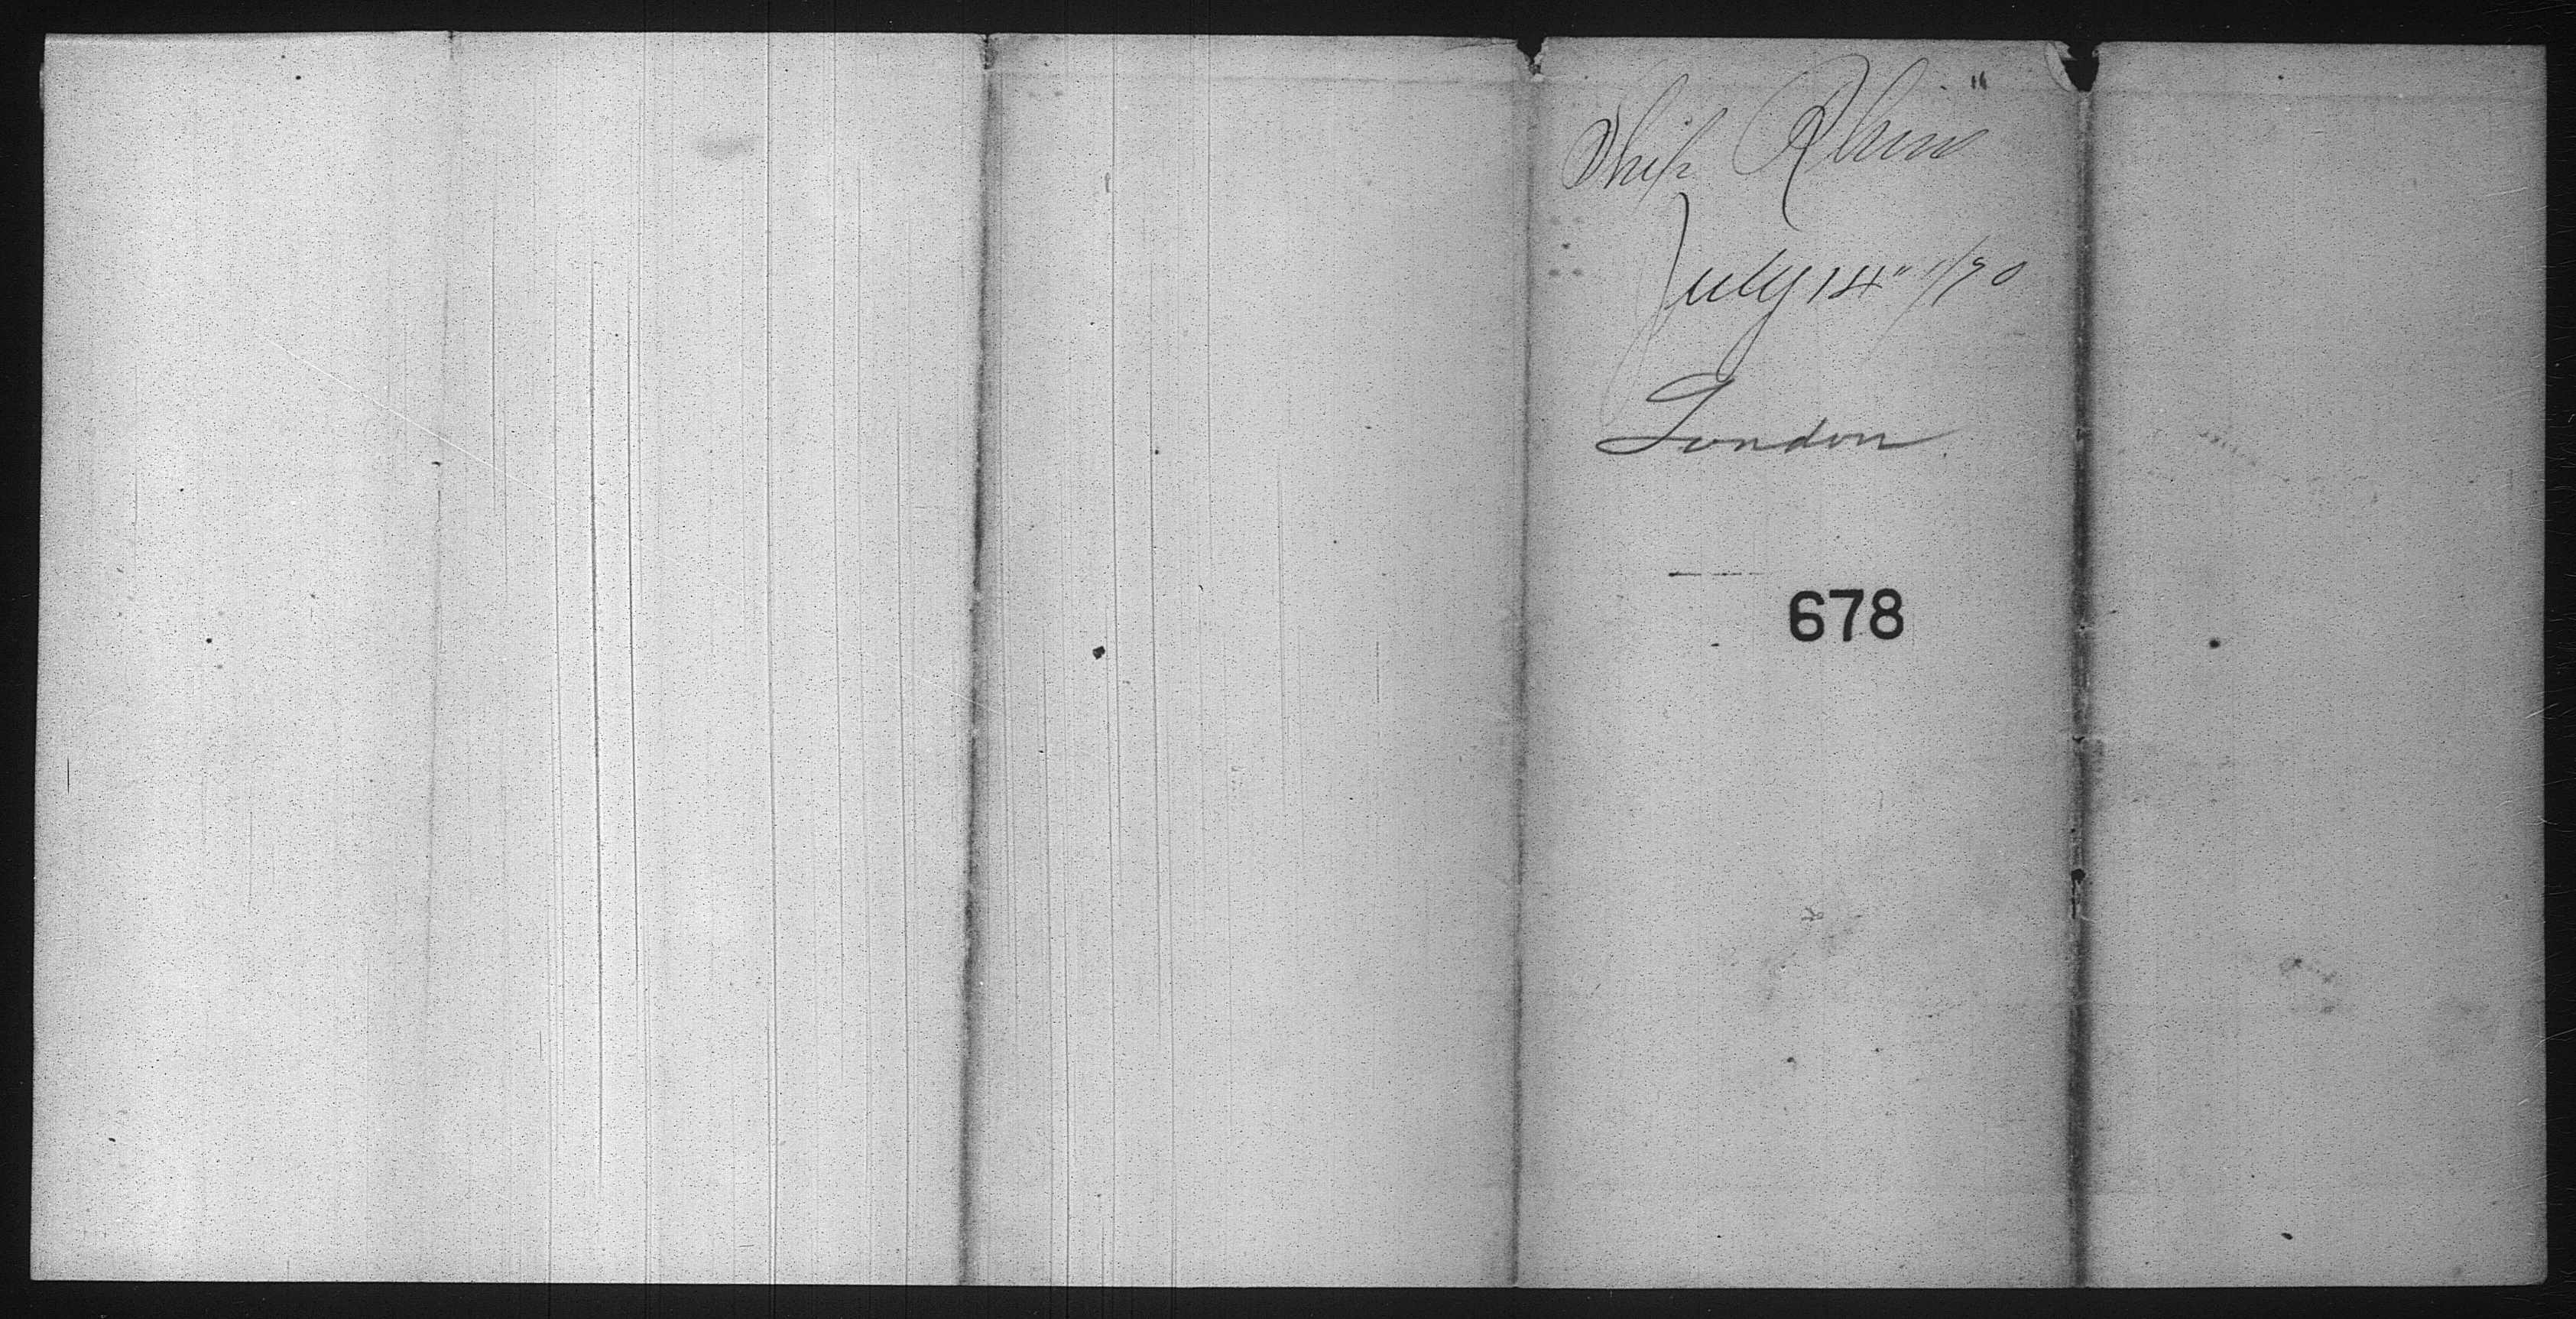 Ship Rhine"
July 14" 1/70
London
678